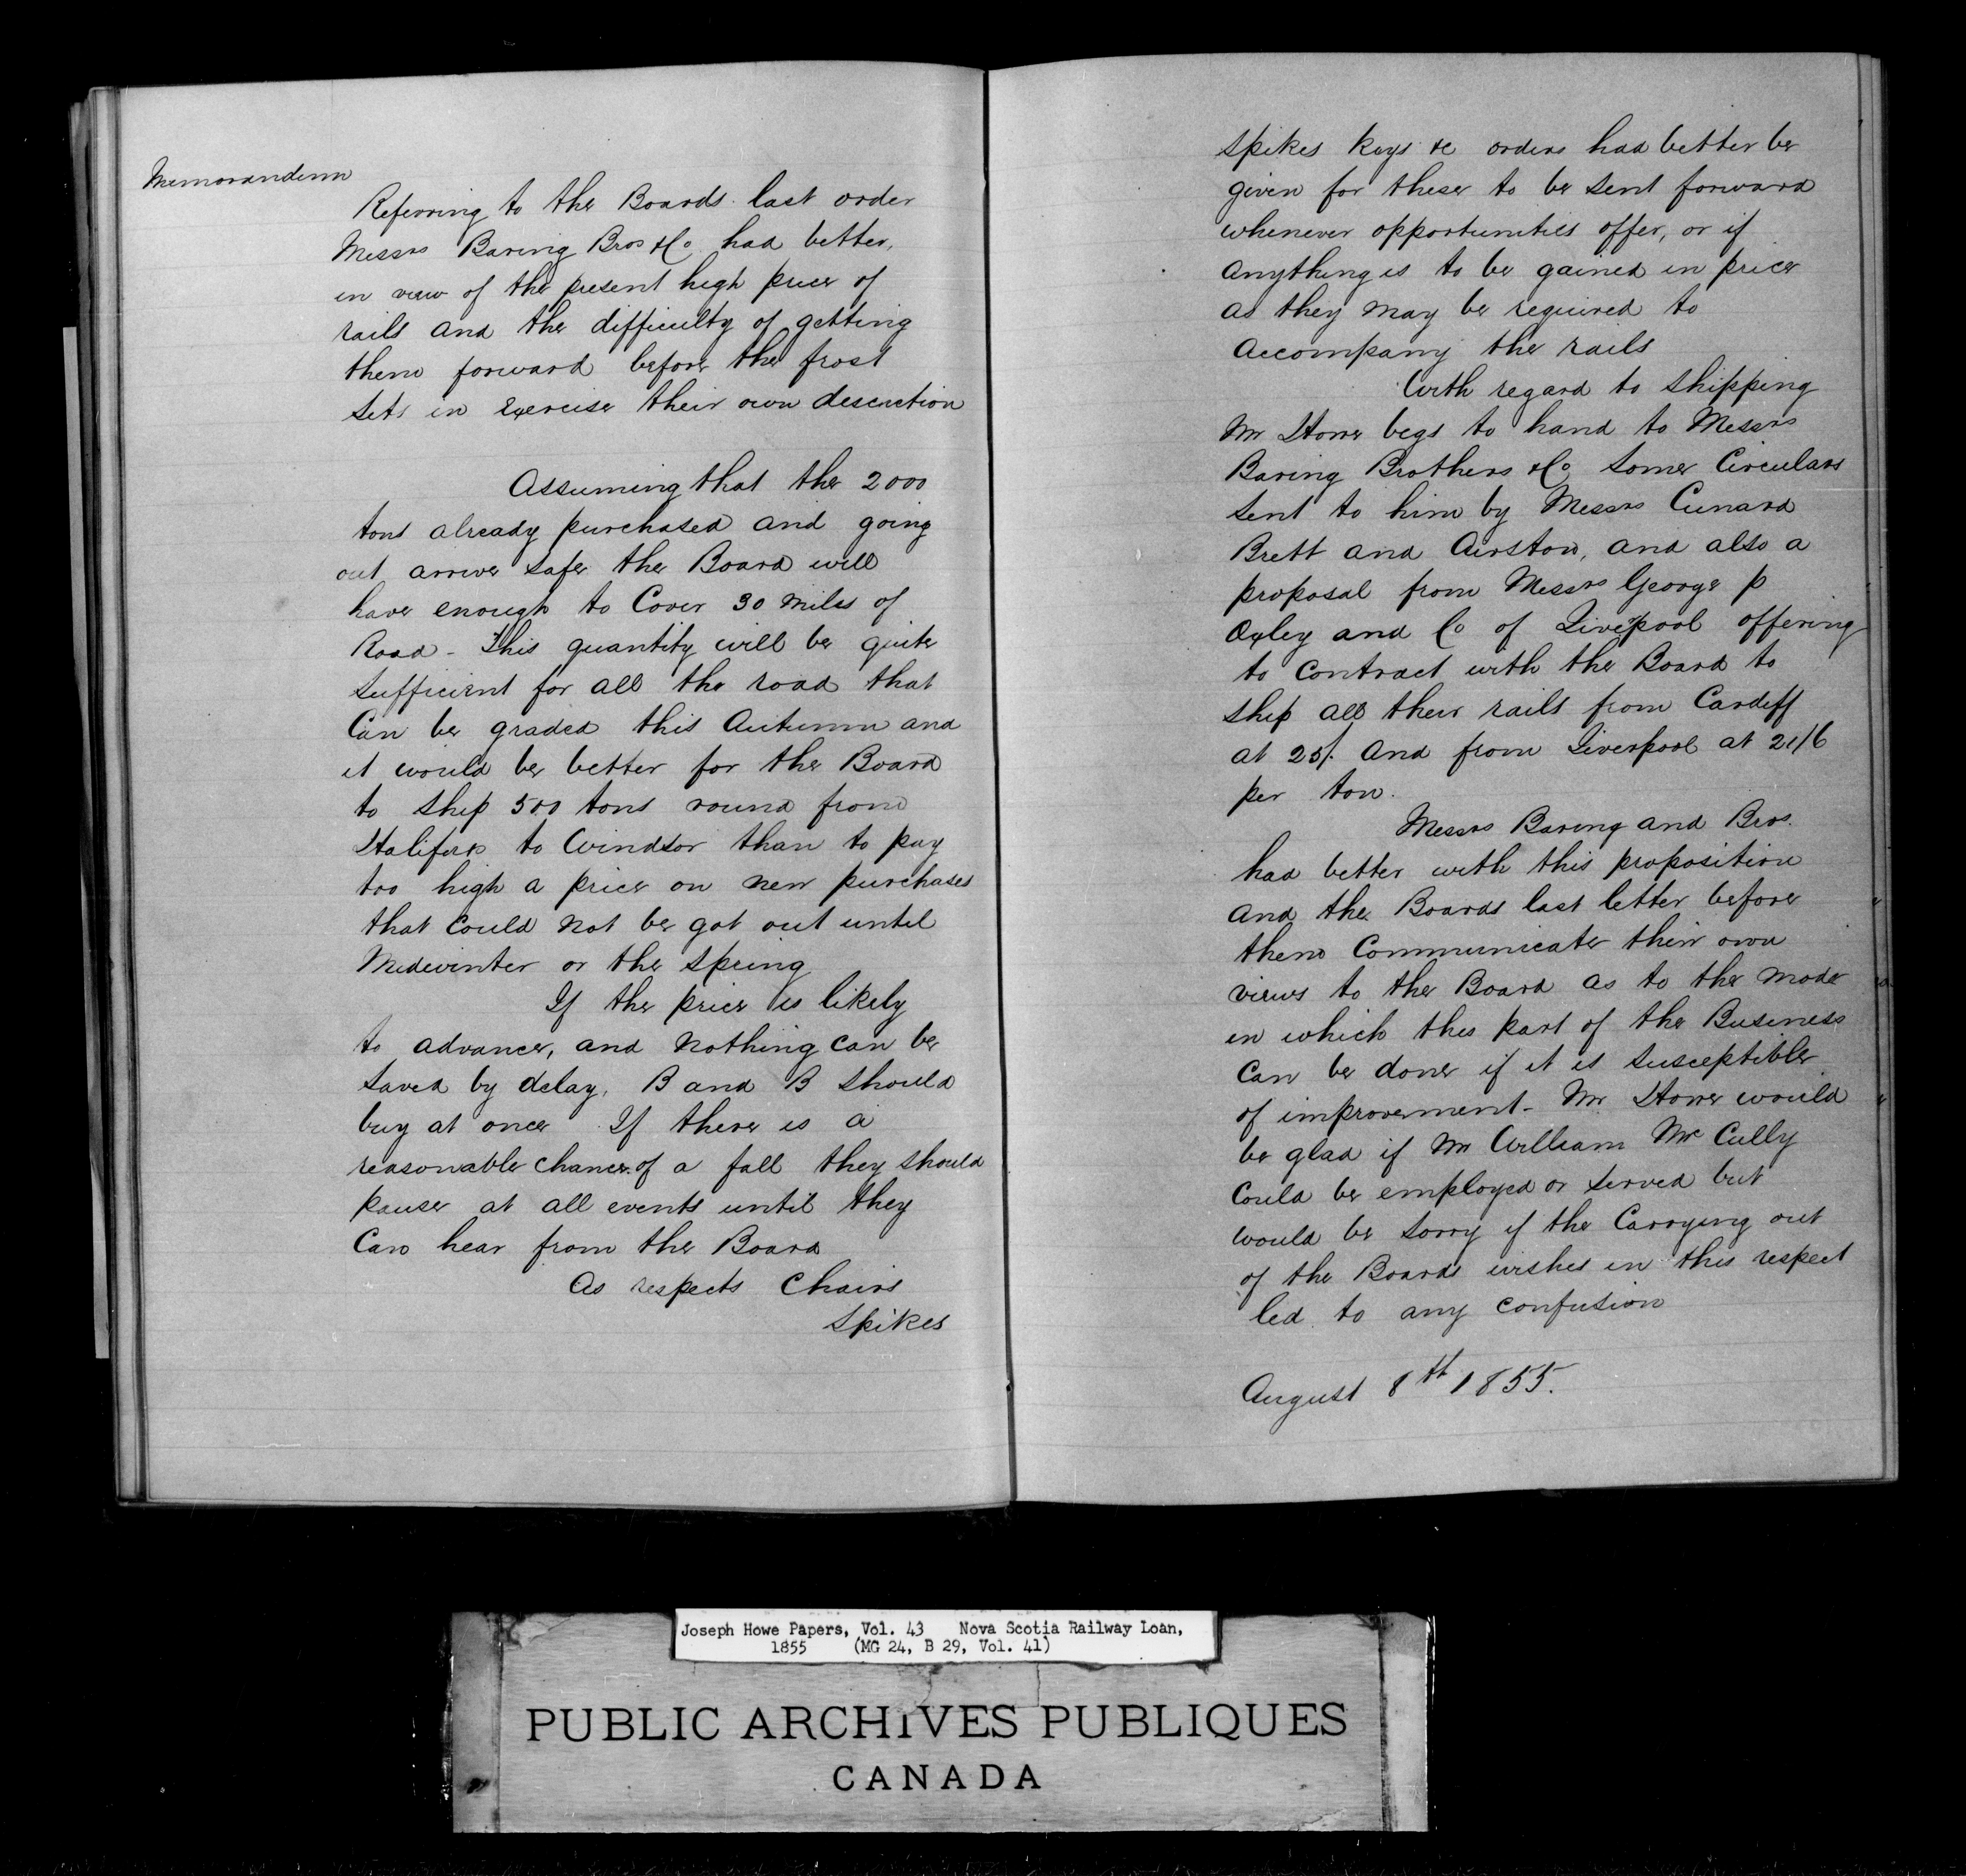 Memorandum
Referring to the Boards last order
Messrs Baring Bros & Co had better,
in view of the present high price of
rails and the difficulty of getting
them forward before the frost
sets in Exercise their own descretion
Assuming that the 2000
tons already purchased and going
out arrive safe the Board will
have enough to Cover 30 miles of
Road - This quantity will be quite
sufficient for all the road that
Can be graded this Autumn and
it would be better for the Board
to ship 500 tons round from
Halifax to Windsor than to pay
too high a price on new purchases
that Could not be got out until
Midwinter or the spring
If the price is likely
to advance, and nothing can be
saved by delay, B and B should
buy at once If there is a
reasonable chance of a fall they should
pause at all events until they
Can hear from the Board
As respects Chairs
Spikes
spikes keys &c orders had better be
given for these to be sent forward
whenever opportunities offer, or if
anything is to be gained in price
as they may be required to
accompany the rails
With regard to shipping
Mr Howe begs to hand to Messrs
Baring Brothers & Co some Circulars
sent to him by Messrs Cunard
Brett and Airston, and also a
proposal from Messrs George p
Oxley and Co of Liverpool offering
to Contract with the Board to
ship all their rails from Cardiff
at 25/. and from Liverpool at 21/6
per ton.
Messrs Baring and Bros.
had better with this proposition
and the Boards last letter before
them Communicate their own
views to the Board as to the mode
in which this part of the Business
Can be done if it is susceptible
of improvement - Mr Howe would
be glad if Mr William McCully
Could be employed or served but
would be sorry if the Carrying out
of the Boards wishes in this respect
led to any confusion
August 8th 1855.
Joseph Howe Papers, Vol. 43 Nova Scotia Railway Loan,
1855 (MG 24, B 29, Vol. 41)
PUBLIC ARCHIVES PUBLIQUES
CANADA